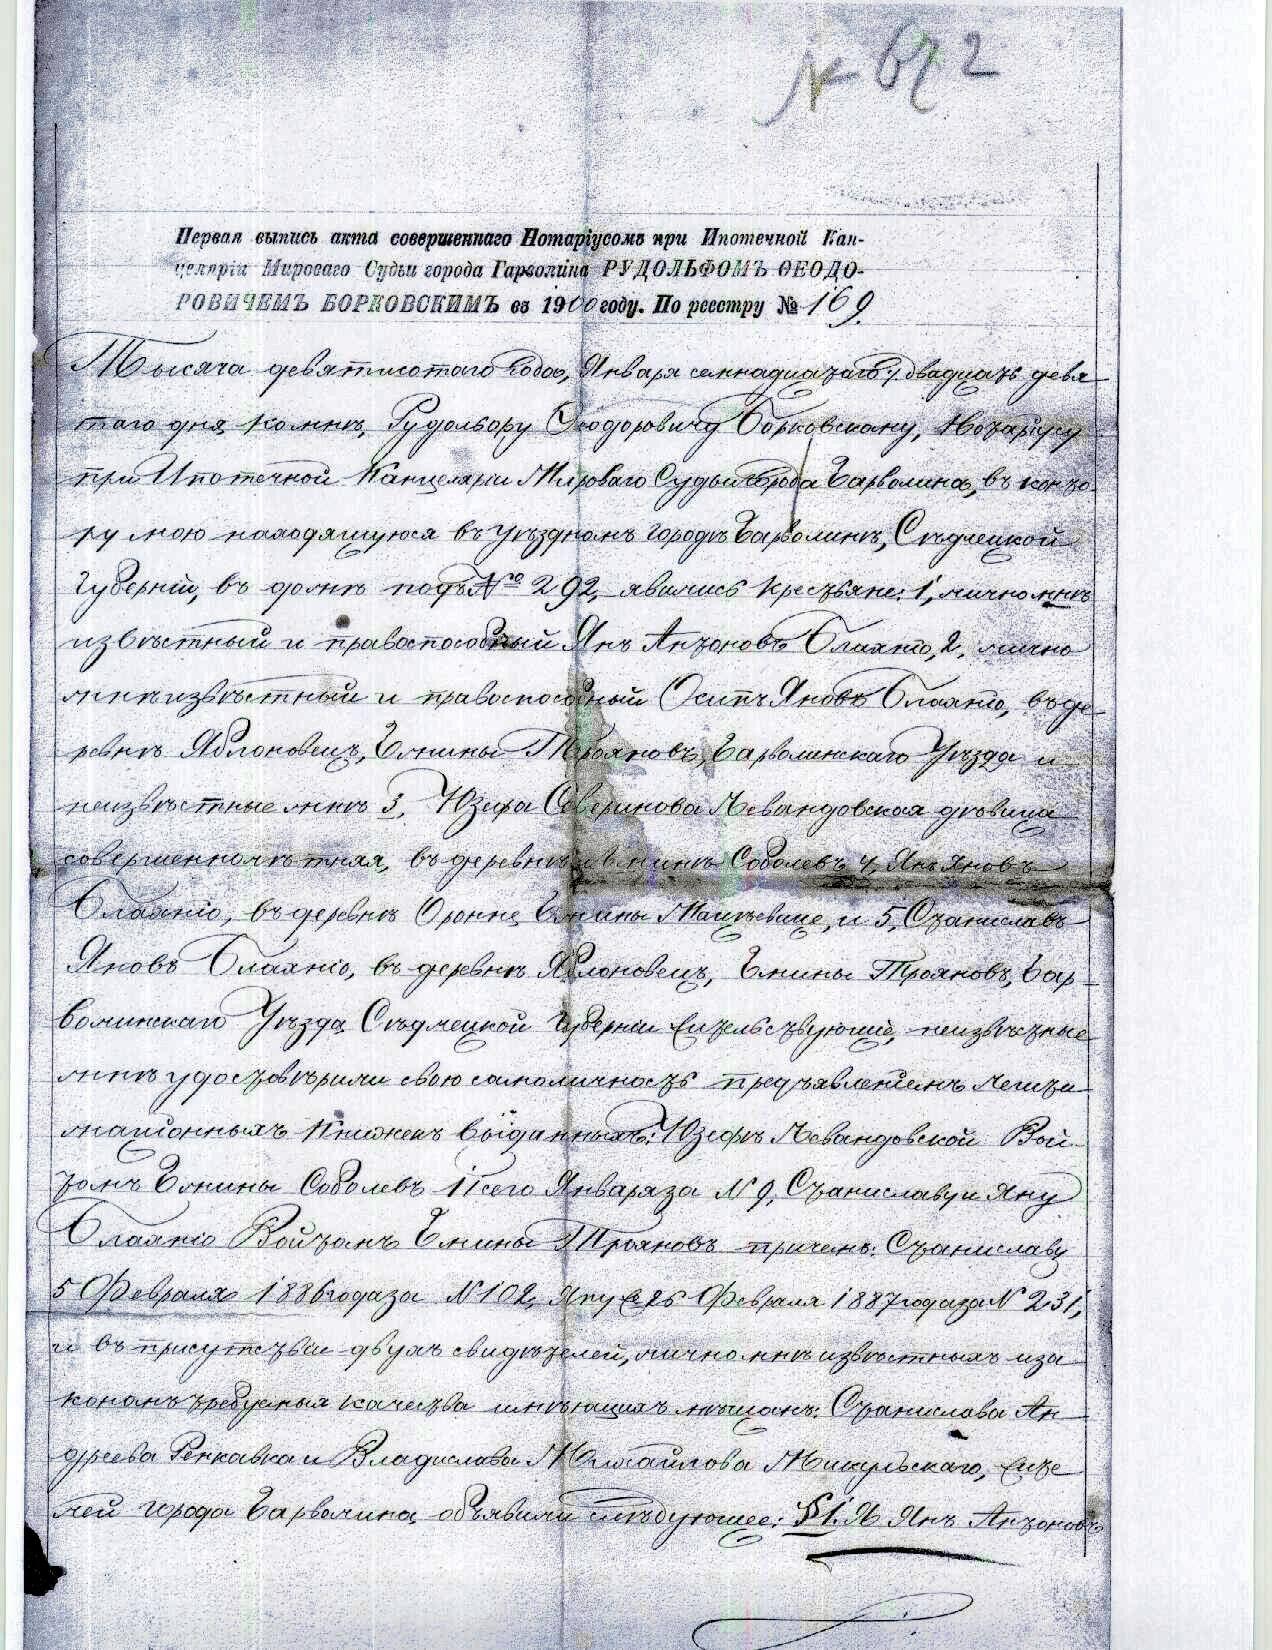 № 672
Первая выпись акта совершеннаго Нотаріусомъ при Ипотечной Кан-
целяріи Мироваго Судьи города Гарволина РУДОЛЬФОМЪ ѲЕОДО-
РОВИЧЕМЪ БОРКОВСКИМЪ въ 1900 году. По реестру № 169.
Тысяча девятисотаго года, Января семнадцатаго / двадцать девя
таго дня ко мнѣ, Рудольфу Ѳеодоровичу Борковскому, Нотаріусу
при Ипотечной Канцеляріи Мироваго Судьи города Гарволина, въ конто
ру мою находящуюся въ уѣздномъ городѣ Гарволинѣ, Сѣдлецкой
Губерніи, въ домѣ подъ № 292, явились крестьяне: 1, лично мнѣ
извѣстный и правоспособный Янъ Антоновъ 2, лично
мнѣ извѣстный и правоспособный Осипъ Яновъ въ де
ревнѣ Яблоновецъ, Гмины Трояновъ, Гарволинскаго Уѣзда и
неизвѣстные мнѣ 3, Юзефа Северинова Левандовская дѣвица
совершеннолѣтняя, въ деревнѣ и гминѣ Соболевъ 4, Янъ Яновъ
въ деревнѣ Оронне Гмины Мацѣевице, и 5, Станиславъ
Яновъ въ деревнѣ Яблоновецъ, Гмины Трояновъ, Гар-
волинскаго Уѣзда Сѣдлецкой Губерніи жительствующіе, неизвѣстные
мнѣ удостовѣрили свою самоличность предъявленіемъ легити
маціонныхъ книжекъ выданныхъ: Юзефѣ Левандовской Вой-
томъ Гмины Соболевъ 11 сего Января за № 9, Станиславу и Яну
Войтомъ Гмины Трояновъ причемъ: Станиславу
5 Февраля 1886 года за № 102, Яну 26 Февраля 1887 года за № 231,
и въ присутствіи двухъ свидѣтелей, лично мнѣ извѣстныхъ и за
кономъ требуемыя качества имѣющихъ мѣщанъ: Станислава Ан
дреева Ренкавка и Владислава Михайлова жите
лей города Гарволина объявили слѣдующее: §1. Я Янъ Антоновъ